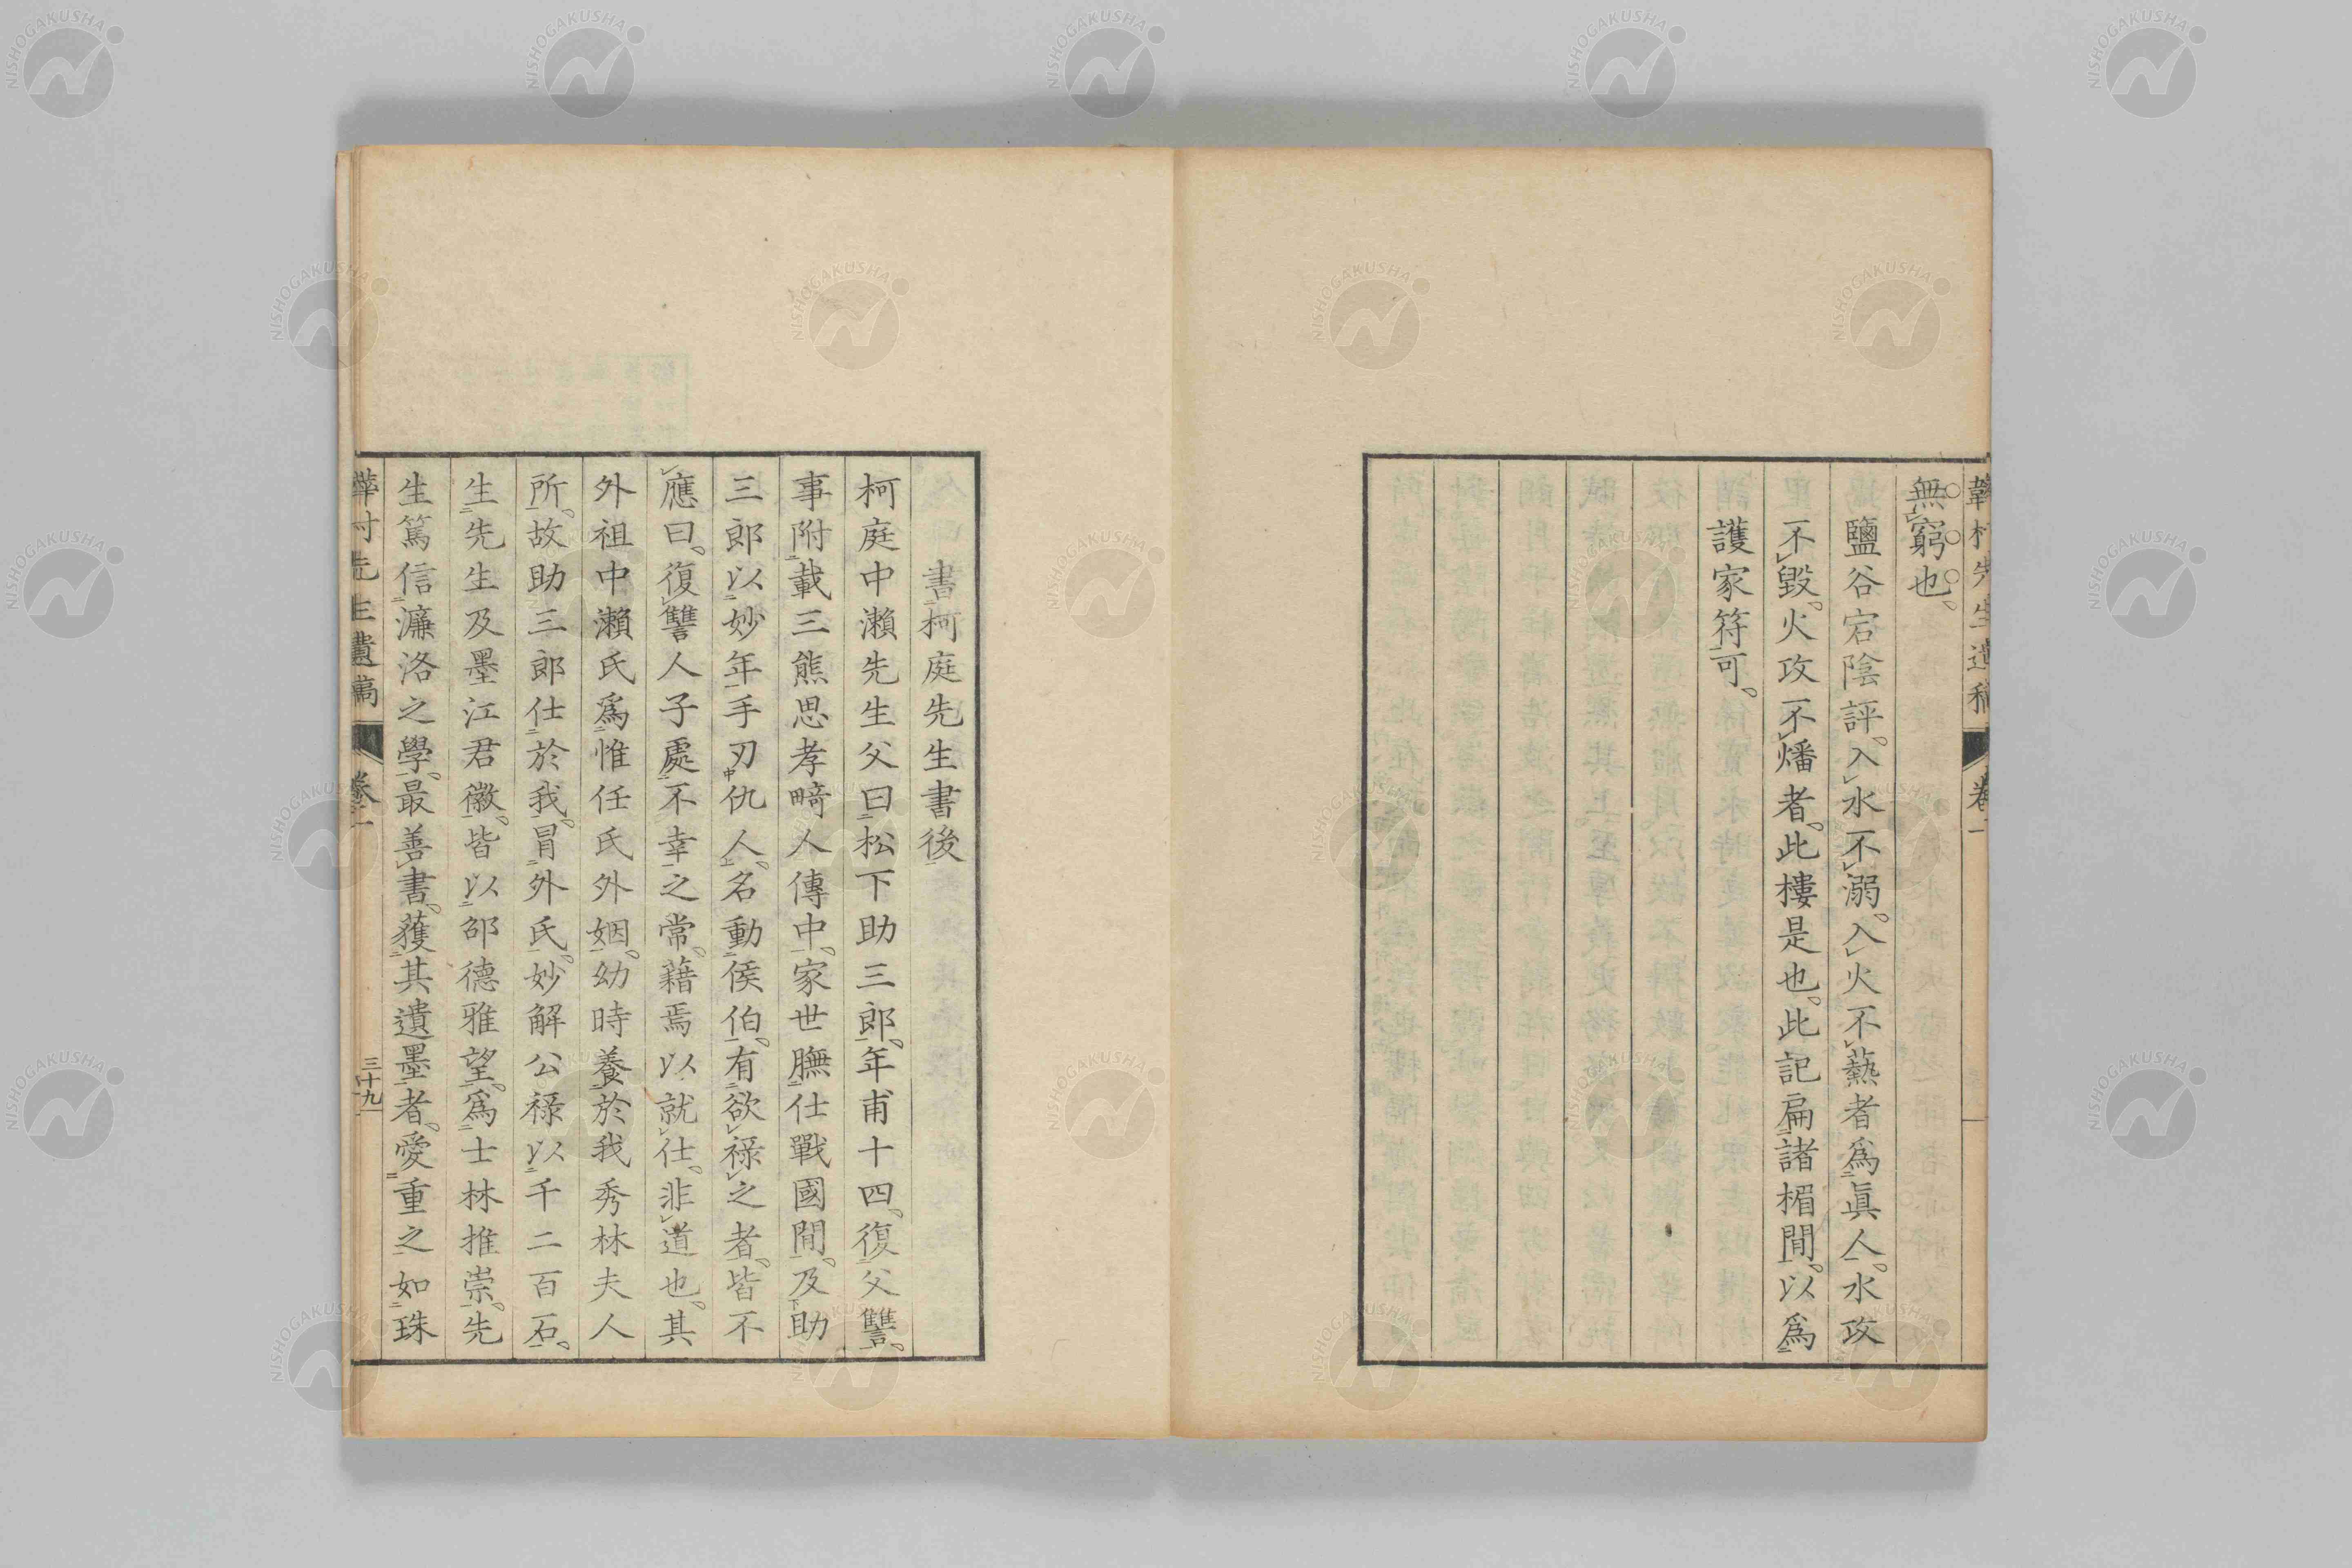 韡村先生遺稿 卷一
無窮也。
鹽谷宕陰評。入水不溺。入火不爇者爲眞人。水攻
不毀。火攻不燔者。此樓是也。此記扁諸楣間。以爲
護家符可。
書柯庭先生書後
柯庭中瀨先生父曰松下助三郎。年甫十四。復父讐。
事附載三熊思孝畸人傳中。家世膴仕戰國間。及助
三郎以妙年手刃仇人。名動侯伯。有欲祿之者。皆不
應曰。復讐人子處不幸之常。藉焉以就仕。非道也。其
外祖中瀨氏爲惟任氏外姻。幼時養於我秀林夫人
所。故助三郎仕於我。冒外氏。妙解公祿以千二百石。
生先生及墨江君徽。皆以邵德雅望。爲士林推崇。先
生篤信濂洛之學。最善書。獲其遺墨者。愛重之如珠
韡村先生遺稿 卷一 三十九
NISHOGAKUSHA